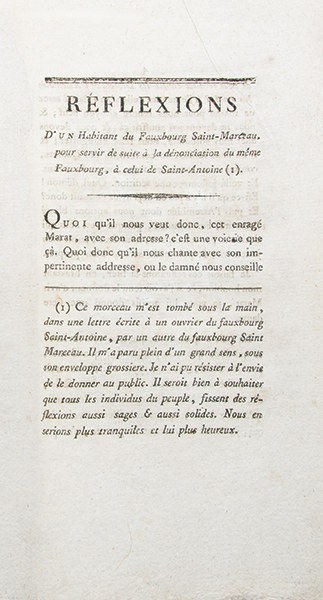 RÉFLEXIONS
D'UN Habitant du Fauxbourg Saint-Marceau,
pour servir de suite à la dénonciation du même
Fauxbourg, à celui de Saint-Antoine (1).
QUOI qu'il nous veut donc, cet enragé
Marat, avec son adresse? c'est une voicie que
çà. Quoi donc qu'il nous chante avec son im-
pertinente addresse, ou le damné nous conseille
(1) Ce morceau m'est tombé sous la main,
dans une lettre écrite à un ouvrier du fauxbourg
Saint-Antoine, par un autre du fauxbourg Saint
Marceau. Il m'a paru plein d'un grand sens, sous
son enveloppe grossiere. Je n'ai pu résister à l'envie
de le donner au public. Il seroit bien à souhaiter
que tous les individus du peuple, fissent des ré-
flexions aussi sages & aussi solides. Nous en
serions plus tranquiles et lui plus heureux.